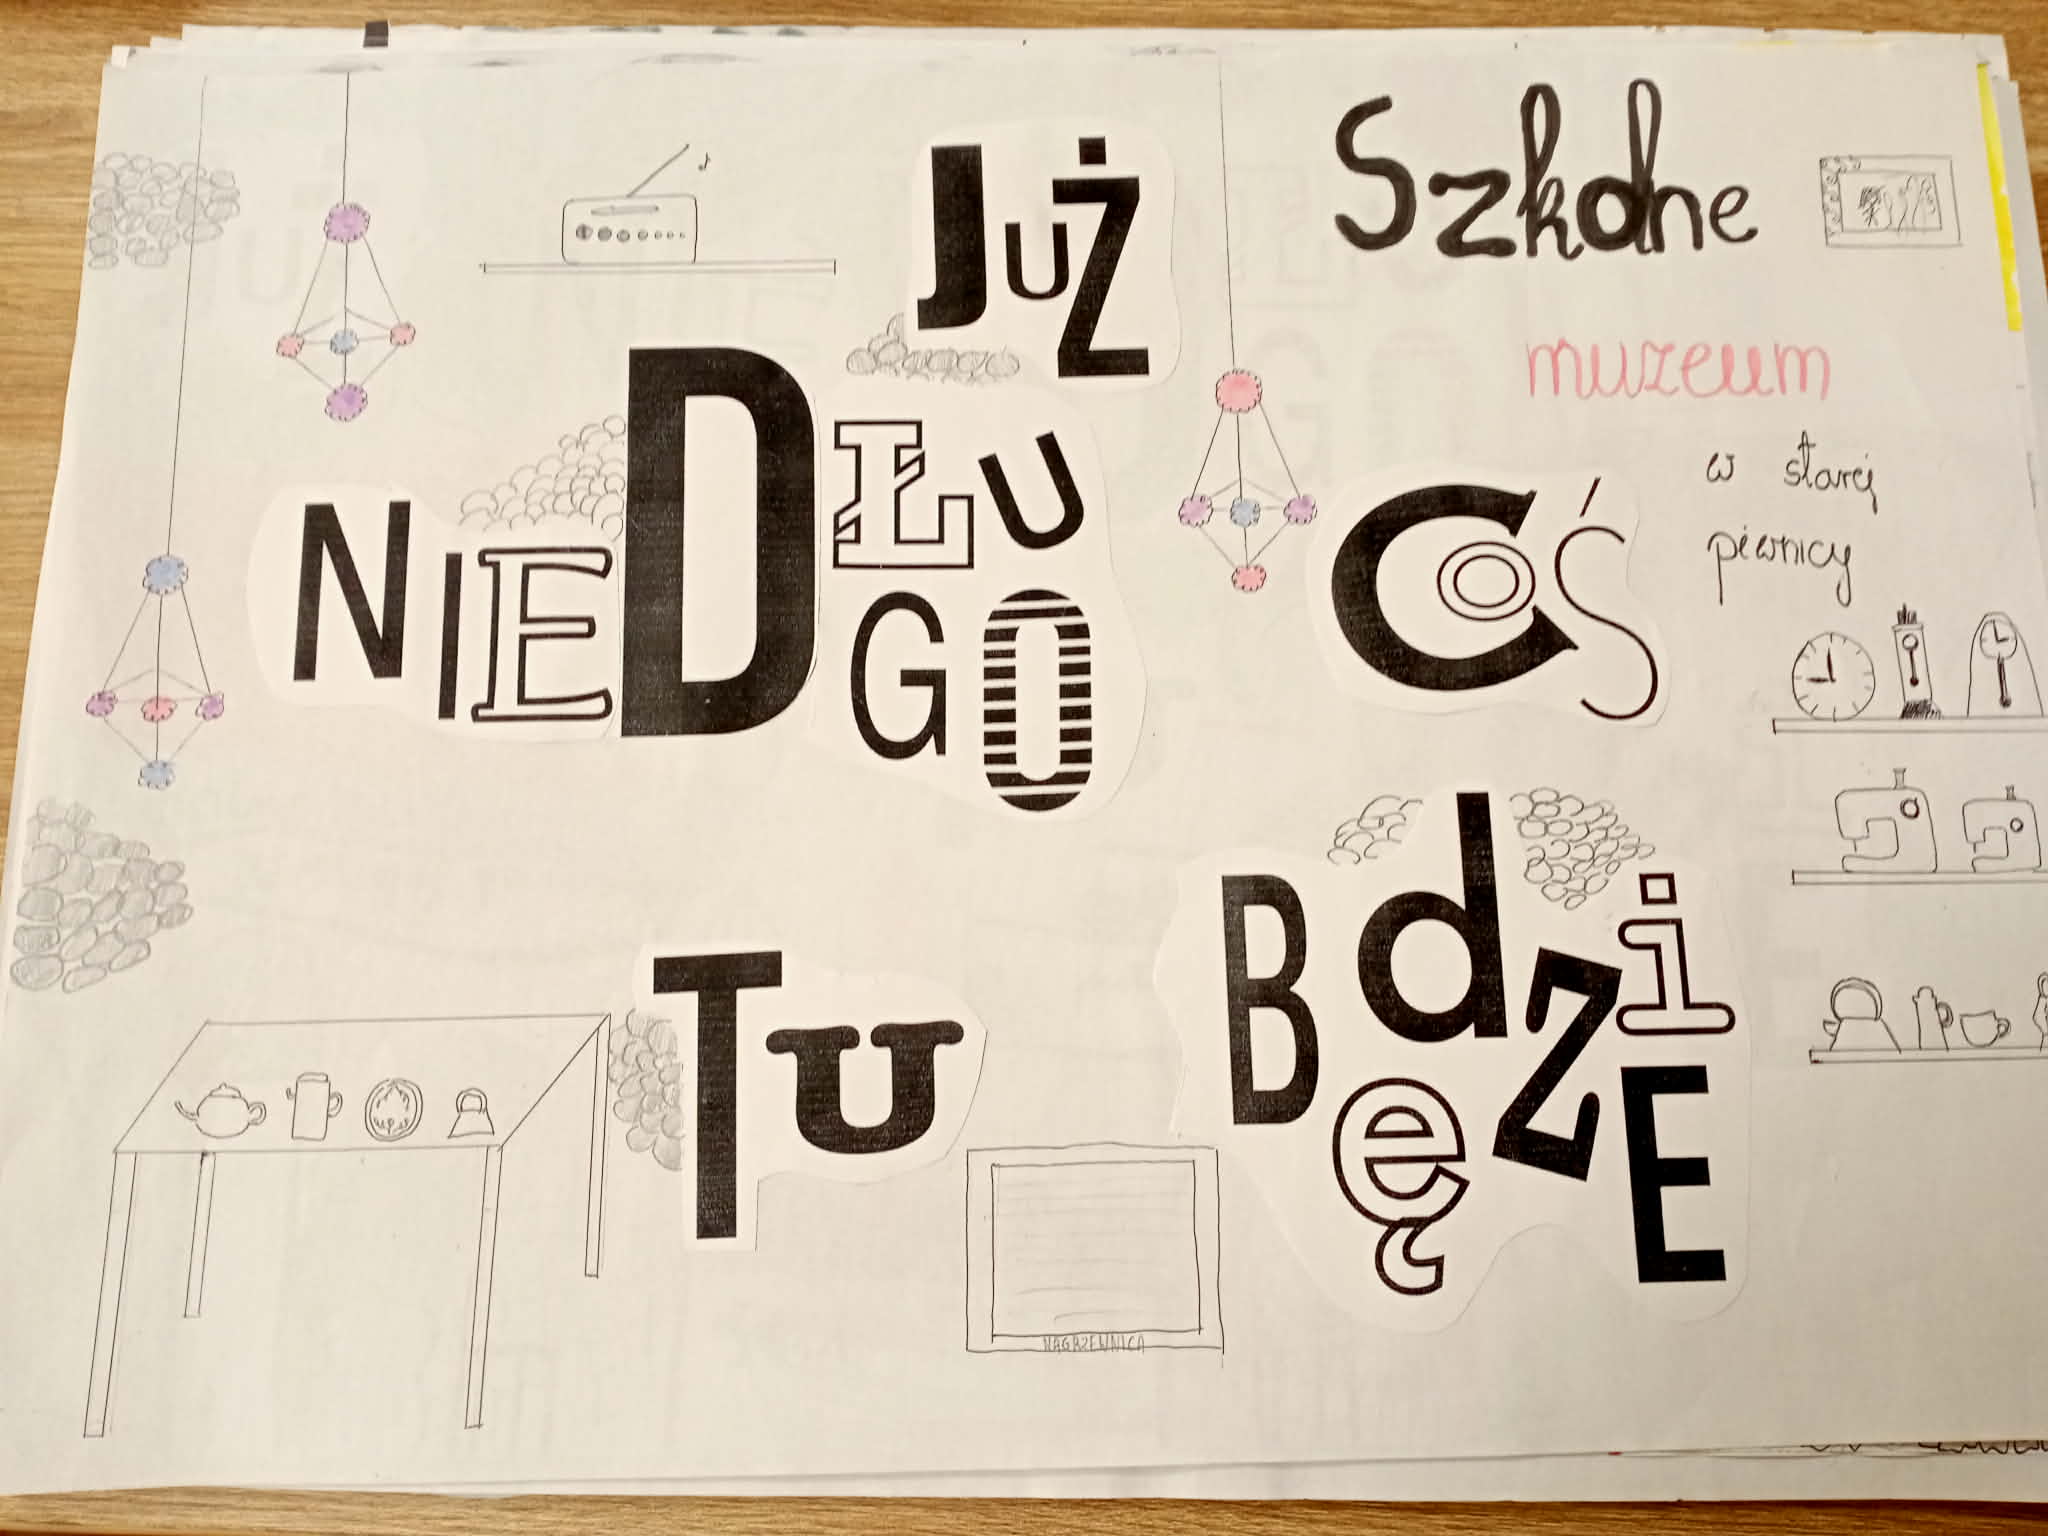 JUŻ
NIEDŁUGO
COŚ
TU
BędziE
Szkolne
muzeum
w starej
piwnicy
NAGRZEWNICA